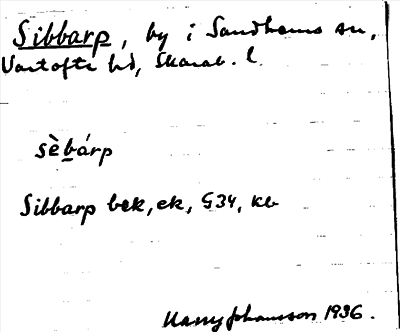 Sibbarp, by i Sandhems sn,
Vartofta hd, Skarab. l.
sèbárp
Sibbarp bek, ek, § 34, kb
Harry Johansson 1936.